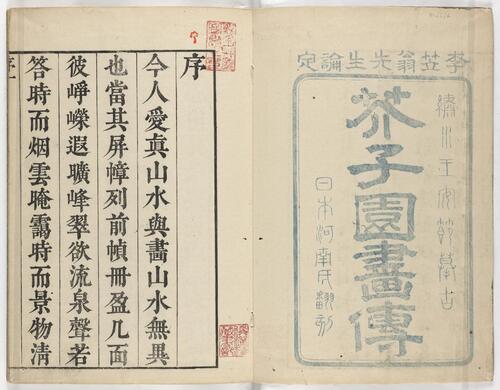 李笠翁先生論定
繡水王安節摹古
芥子園畫傳
日本河南氏翻刻
序
今人愛眞山水與畵山水無異
也當其屏幛列前幀冊盈几面
彼崢嶸遐曠峰翠欲流泉聲若
答時而烟雲晻靄時而景物清